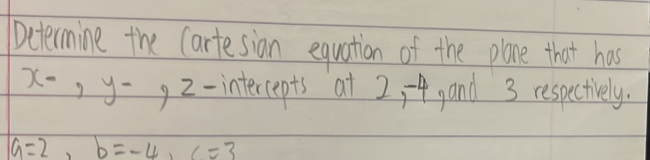 Determine the Cartesian equation of the plane that has
x-, y-, z-intercepts at 2, -4, and 3 respectively.
a=2, b=-4, c=3